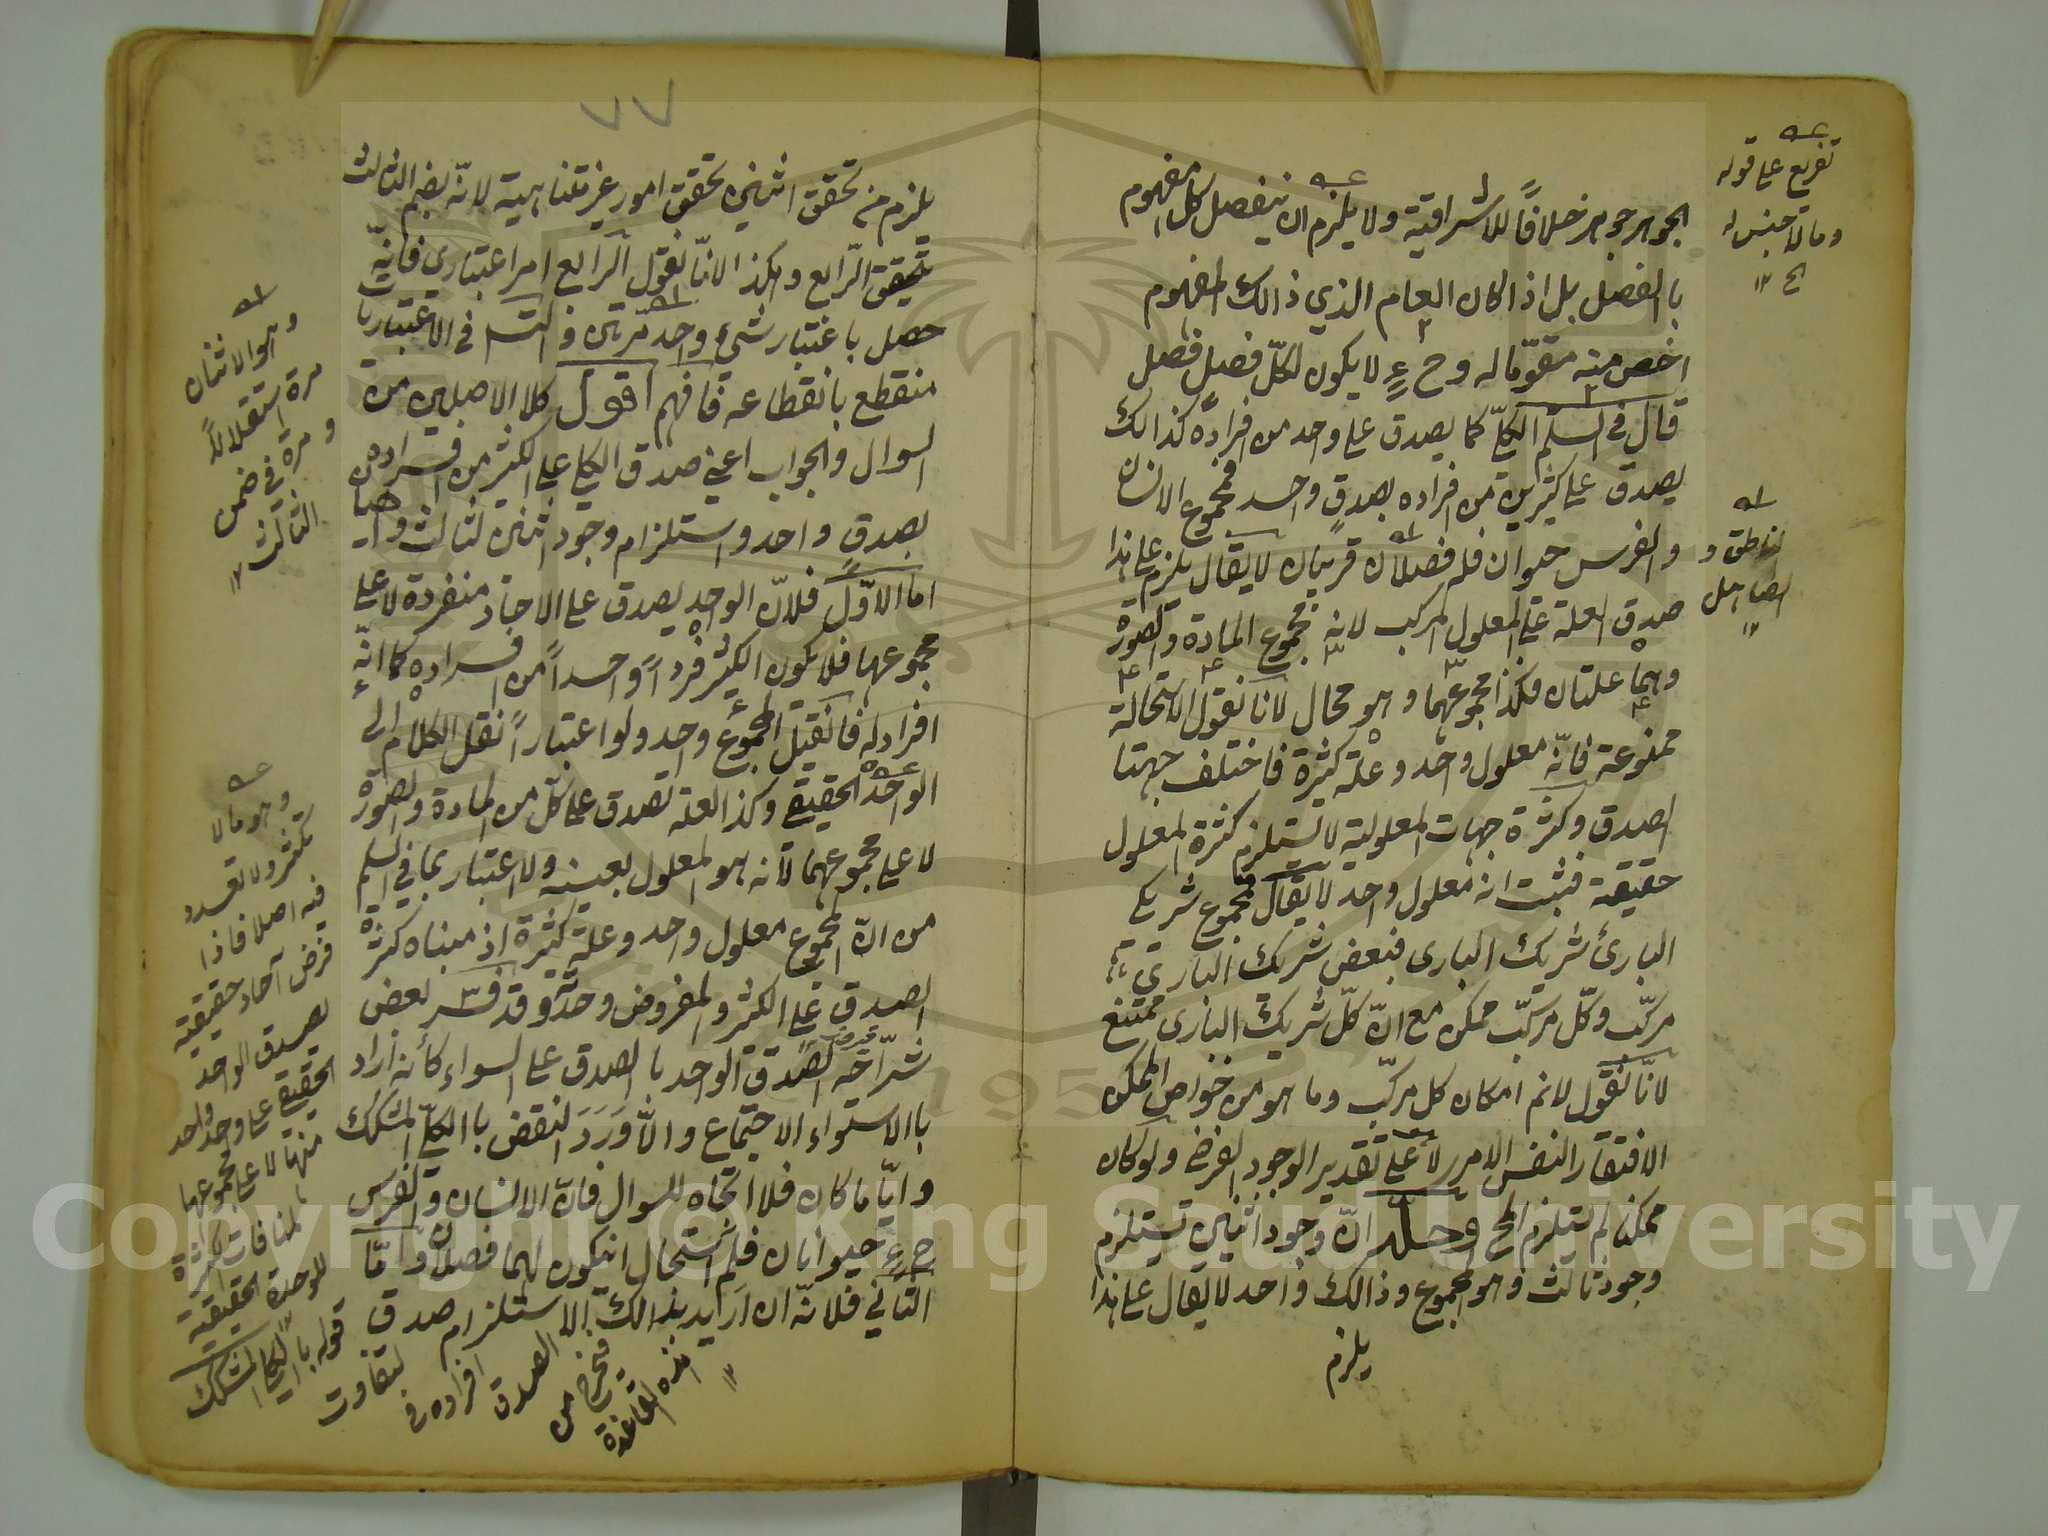 الجوهر جوهر خلافاً للاشراقية ولا يلزم ان ينفصل كل مفهوم
بالفصل بل اذا كان العام الذي ذالك المفهوم
اخص منه مقوّما له وح لا يكون لكلّ فصل فصل
قال في السلم الكلّي كما يصدق على واحد من افراده كذالك
يصدق على كثيرين من افراده بصدق واحد فمجموع الانسان
والفرس حيوان فله فصلان قريبان لا يقال يلزم على هذا
صدق العلة على المعلول المركب لانه مجموع المادة والصورة
وهما علتان فكذا مجموعهما وهو محال لانا نقول الاستحالة
ممنوعة فانّه معلول واحد وعلة كثيرة فاختلف جهتا
الصدق وكثرة جهات المعلولية لا تستلزم كثرة المعلول
حقيقة فثبت انه معلول واحد لا يقال مجموع شريكي
البارئ شريك البارى فبعض شريك الباري
مركّب وكلّ مركّب ممكن مع انّ كلّ شريك البارى ممتنع
لانّا نقول لانم امكان كل مركّب وما هو من خواص الممكن
الافتقار النفس الامر لا على تقدير الوجود الفرضي ولو كان
ممكنا لم يستلزم المح وحلّه انّ وجود اثنين يستلزم
وجود ثالث وهو المجموع وذالك واحد لا يقال على هذا
يلزم
تفريع على قوله
وما لا جنس له
الخ ١٢
الناطق و
الصاهل
١٢
٧٧
يلزم من تحقق اثنين تحقق امور غير متناهية لانّه بضم الثالث
يتحقق الرّابع وهكذا لانّا نقول الرّابع امر اعتباري فانّه
حصل باعتبار شيء واحد مرّتين والتسـ في الاعتباريات
منقطع بانقطاعه فافهم اقول كلا الاصلين من
السوال والجواب اعني صدق الكلي على الكثير من افراده
بصدق واحد واستلزام وجود اثنين لثالث واهيان
اما الاوّل فلانّ الواحد يصدق على الاحاد منفردة لا على
مجموعها فلا يكون الكثير فرداً واحداً من افراده كما انّه
افراد له فان قيل المجموع واحد ولو اعتباراً نقل الكلام الى
الواحد الحقيقي وكذا العلة تصدق على كلّ من المادة والصورة
لا على مجموعهما لانه هو المعلول بعينه ولا اعتبار بما في السلم
من انّ المجموع معلول واحد وعلة كثيرة اذ مبناه كثرة
الصدق على الكثير والمفروض وحدته وقد فسّر بعض
شرّاحه الصدق الواحد بالصدق على السواء كأنه أراد
بالاستواء الاجتماع والّا وَرَدَ النقض بالكلّي المشكك
وايّا ما كان فلا اتجاه للسوال فانّ الانسان والفرس
ح حيوانان فلم استحال ان يكون لهما فصلان وامّا
الثاني فلانّه ان اريد بذالك الاستلزام صدق
وهو الاثنان
مرة استقلالاً
ومرة في ضمن
الثالث ١٢
وهو ما لا
تكثر ولا تعدد
فيه اصلا فاذا
فرض آحاد حقيقية
يصدق الواحد
الحقيقي على واحد واحد
منها لا على مجموعها
لمنافات الكثرة
للوحدة الحقيقية
قوله بالكلي المشكك
لتفاوت
افراده في
الصدق
فيخرج من
هذه القاعدة
١٢